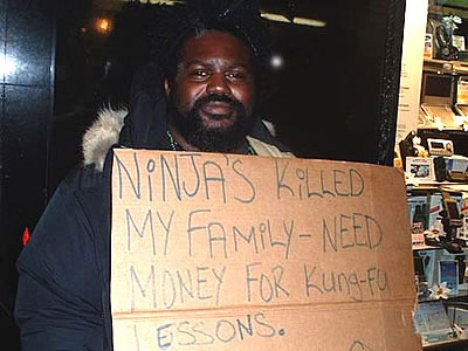 NiNJA'S KiLLED
MY FAMiLY - NEED
MONEY FOR KUNG-FU
LESSONS.